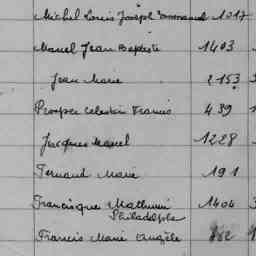 Michel Louis Joseph Emmanuel 1017
Marcel Jean Baptiste 1403
Jean Marie 2153
Prosper Celestin Francis 439
Jacques Marcel 1228
Fernand Marie 191
Francisque Mathurin 1404
Philadelphe
Francis Marie Angèle 862